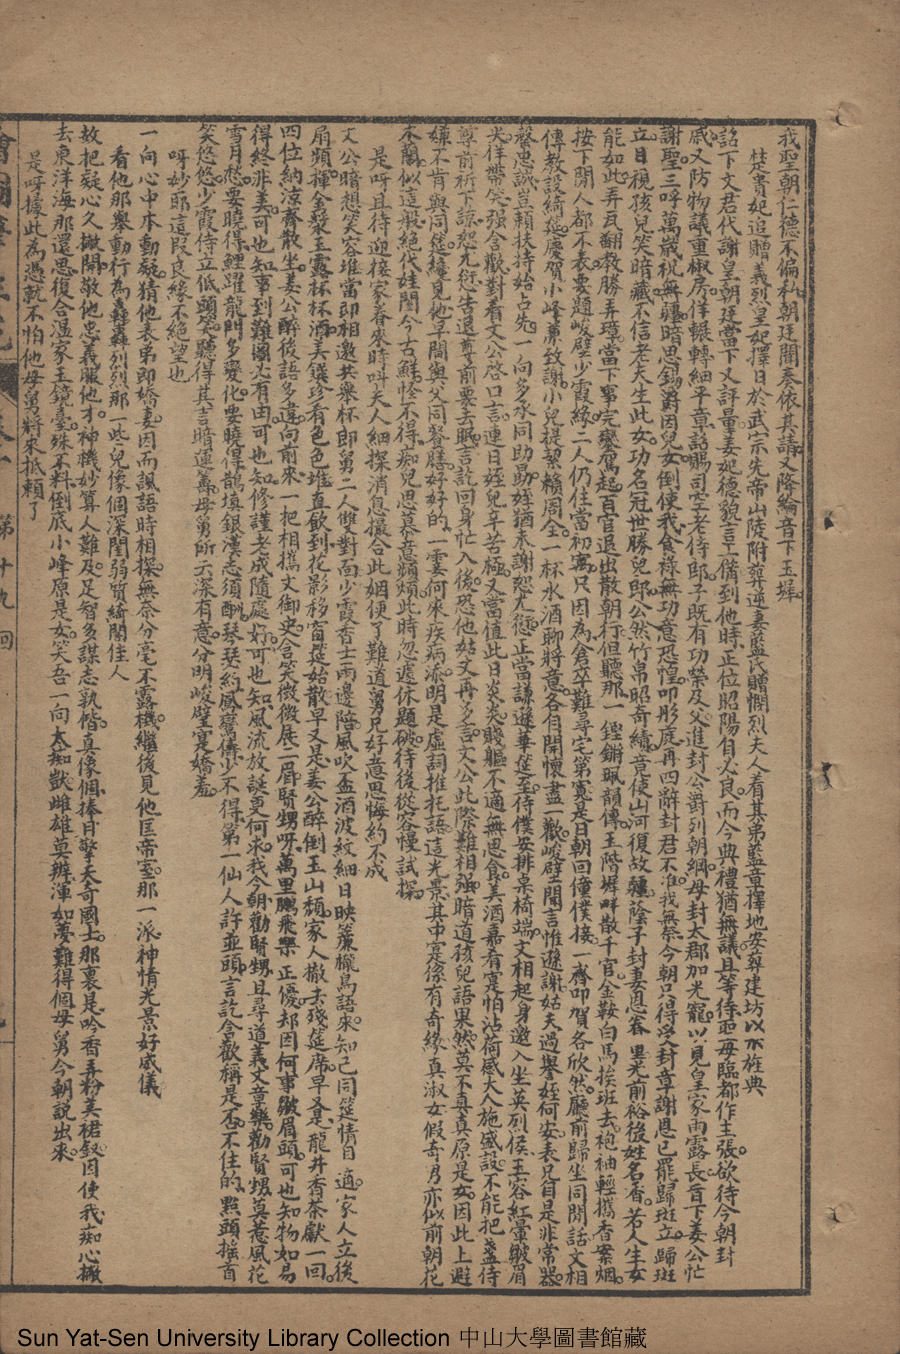 我聖朝仁德不偏私朝廷聞奏依其請又降綸音下玉墀
楚貴妃追贈義烈皇妃擇日於武宗先帝山陵附葬逆妻藍氏贈憫烈夫人着其弟藍章擇地安葬建坊以示旌典
詔下文君代謝皇朝廷當下又評量姜妃德貌言工備到他時正位昭陽自必良而今典禮猶無議且等待聖母臨都作主張欲待今朝封
戚又防物議重椒房佯輾轉細平章詔賜司空老侍郎子既有功榮及父進封公爵列朝綱母封太郡加光寵以見皇家雨露長旨下姜公忙
謝聖三呼萬歲祝無疆暗思錫爵因兒女倒使我食祿無功意恐惶叩彤庭再四辭封君不准我無奈今朝只得受封章謝恩已罷歸班立歸班
立目視孩兒笑暗藏不信老夫生此女功名冠世勝兒郎公然竹帛昭奇績竟使山河復故疆蔭子封妻恩眷里光前裕後姓名香若人生女
能如此弄瓦翻教勝弄璋當下事完鑾駕起百官退出散朝行但聽那一鏗鏘珮韻傳玉階墀畔散千官金鞍白馬挨班去袍袖輕攜香案烟
按下閒人都不表要題峻壁少霞緣二人仍住當初寓只因為倉卒難尋宅第寬是日朝回僮僕接一齊叩賀各欣然廳前歸坐同閒話文相
傳教設綺筵慶賀小峰兼致謝小兒提挈賴周全一杯水酒聊將意各自開懷盡一歡峻壁聞言惟遜謝姑夫過譽姪何安表兄自是非常器
聲忠誠豈賴扶持始占先一向多承同助勗姪猶未謝恕尤愆止當謙遜華筵至侍僕安排桌椅端文相起身邀入坐英烈侯玉容紅暈皺眉
光佯帶笑强含歡對着文公啓口言連日姪兒辛苦極又當值此日炎炎賤軀不適無思食美酒嘉肴寔怕沾荷感大人施盛設不能把盞侍
尊前祈下諒恕尤愆告退尊前要去眠言訖回身忙入後恐他姑丈再多言文公此際難相强暗道孩兒語果然莫不真真原是女因此上避
嫌不肯與同筵緣見他早間與父同餐膳好好的一霎何來疾病添明是虛詞推托語這光景其中寔像有奇緣真淑女假奇男亦似前朝花
木蘭似這般絕代娃閨今古鮮怪不得痴兒思慕意頻頻此時忽遽休題破待後從容慢試探
是呀且待迎接家眷來時呌夫人細探消息撮合此姻便了難道舅兄好意思悔約不成
文公暗想笑容堆當即相邀共舉杯郎舅二人雙對面少霞香士兩邊陪風吹盃酒波紋細日映簾櫳鳥語來知己同筵情自適家人立後
扇頻揮金漿玉露杯杯酒美饌珍肴色色堆直飲到花影移窗筵始散早又是姜公醉倒玉山頹家人撤去殘筵席早又是龍井香茶獻一回
四位納涼齊散坐姜公醉後語多違向前來一把相攜文御史含笑微微展二眉賢甥呀萬里鵬飛樂正優却因何事皺眉頭可也知物如易
得終非美可也知事到難圖必有由可也知修謹老成隨處好可也知風流放誕更何求我今朝勸賢甥且尋道義文章樂勸賢甥莫惹風花
雪月愁要曉得鯉躍龍門多變化要曉得鵲填銀漢志須酬琴瑟約鳳鸞儔少不得第一仙人許並頭言訖含歡稱是否不住的點頭摇首
笑悠悠少霞侍立低頭笑聽得其言暗運籌母舅所云深有意分明峻壁寔嬌羞
呀妙耶這段良緣不絕望也
一向心中本動疑猜他表弟即嬌妻因而諷語時相探無奈分毫不露機繼後見他匡帝室那一派神情光景好威儀
看他那舉動行為轟轟烈烈那一些兒像個深閨弱質綺閣佳人
故把疑心久撇開敬他忠義服他才神機妙算人難及足智多謀志孰偕真像個捧日擎天奇國士那裏是吟香弄粉美裙釵因使我痴心撇
去東洋海那還思復合温家玉鏡臺殊不料倒底小峰原是女笑吾一向太痴獃雌雄莫辨渾如夢難得個母舅今朝說出來
是呀據此為憑就不怕他母舅將來抵賴了
第十九回
Sun Yat-Sen University Library Collection 中山大學圖書館藏